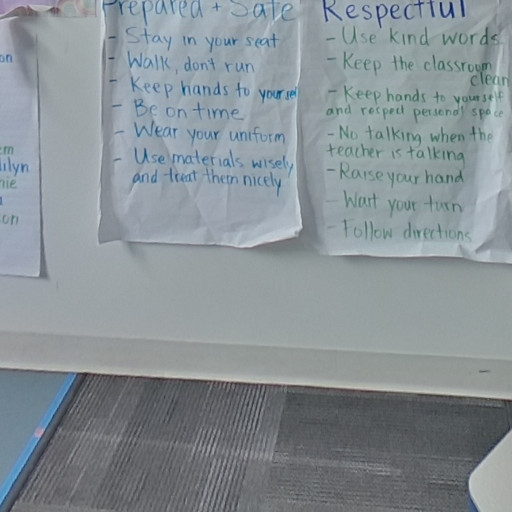 on
em
nie
on
Prepared + Safe
- Stay in your seat
- Walk, don't run
- Keep hands to yourself
- Be on time
- Wear your uniform
- Use materials wisely
and treat them nicely
Respectful
- Use kind words
- Keep the classroom
clean
- Keep hands to yourself
and respect personal space
- No talking when the
teacher is talking
- Raise your hand
- Wait your turn
- Follow directions